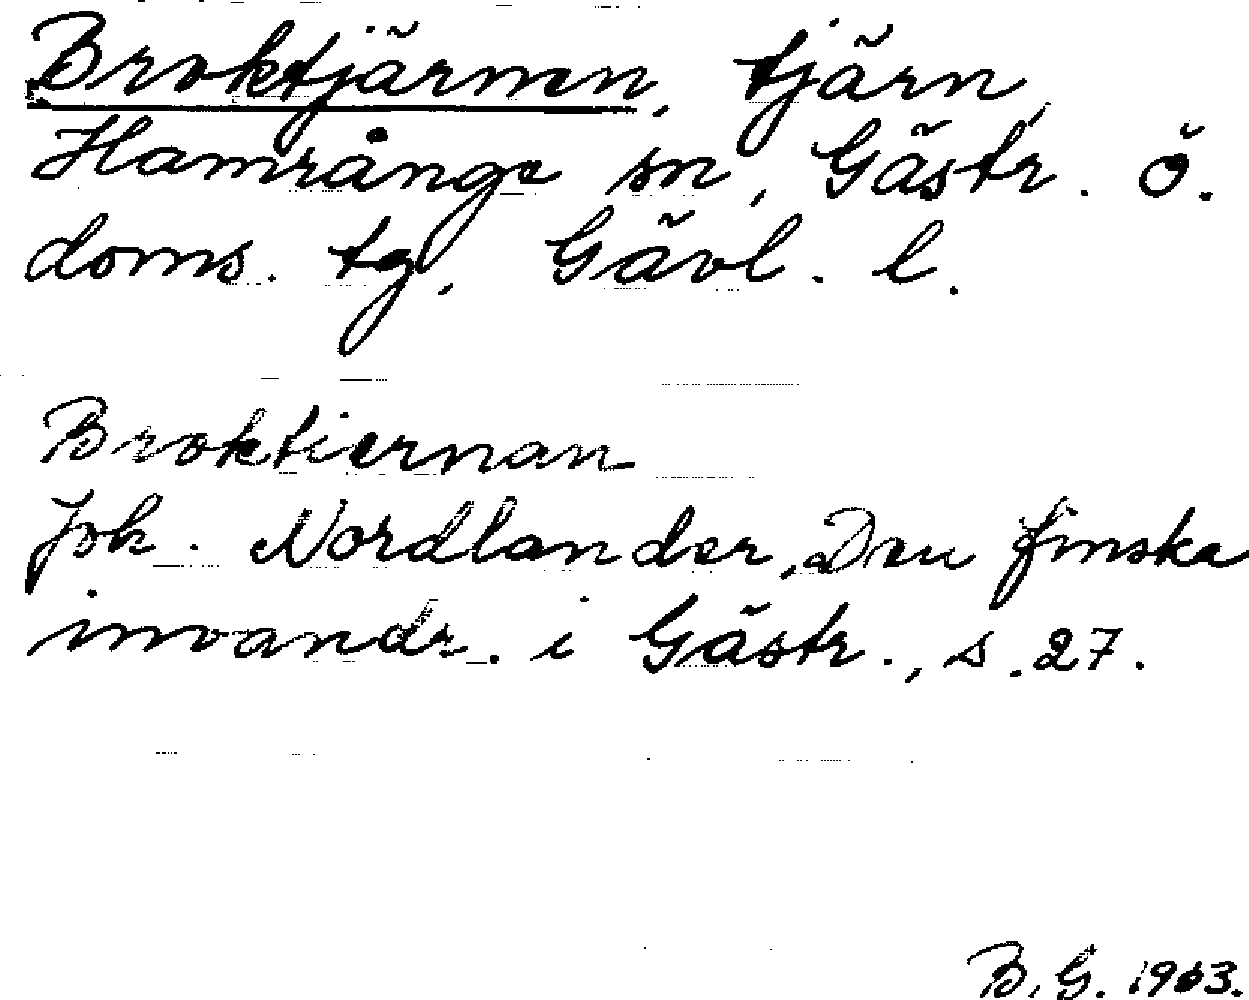 Broktjärnen, tjärn,
Hamrånge sn, Gästr. ö.
doms. tg, Gävl. l.
Broktiernan
Joh. Nordlander, Den finska
invandr. i Gästr., s. 27.
B. G. 1963.